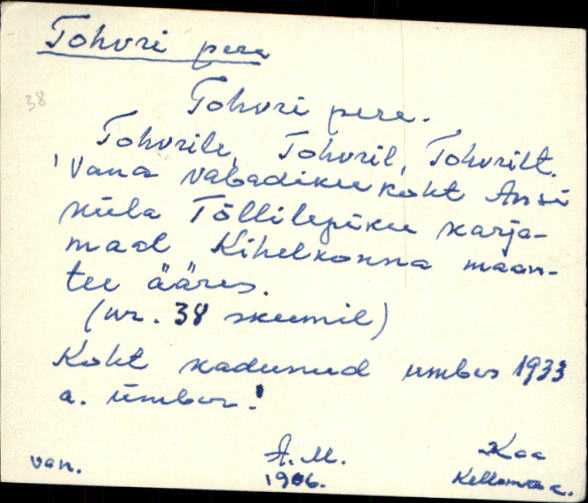 Tohvri pere
38
Tohvri pere.
Tohvrile, Tohvril, Tohvrilt.
Vana vabadiku koht Ansi
küla Töllilepiku karja-
maal Kihelkonna maan-
tee ääres.
(nr. 38 skeemil)
Koht kadunud umbes 1933
a. ümber!
van.
A. M.
1906.
Kaa